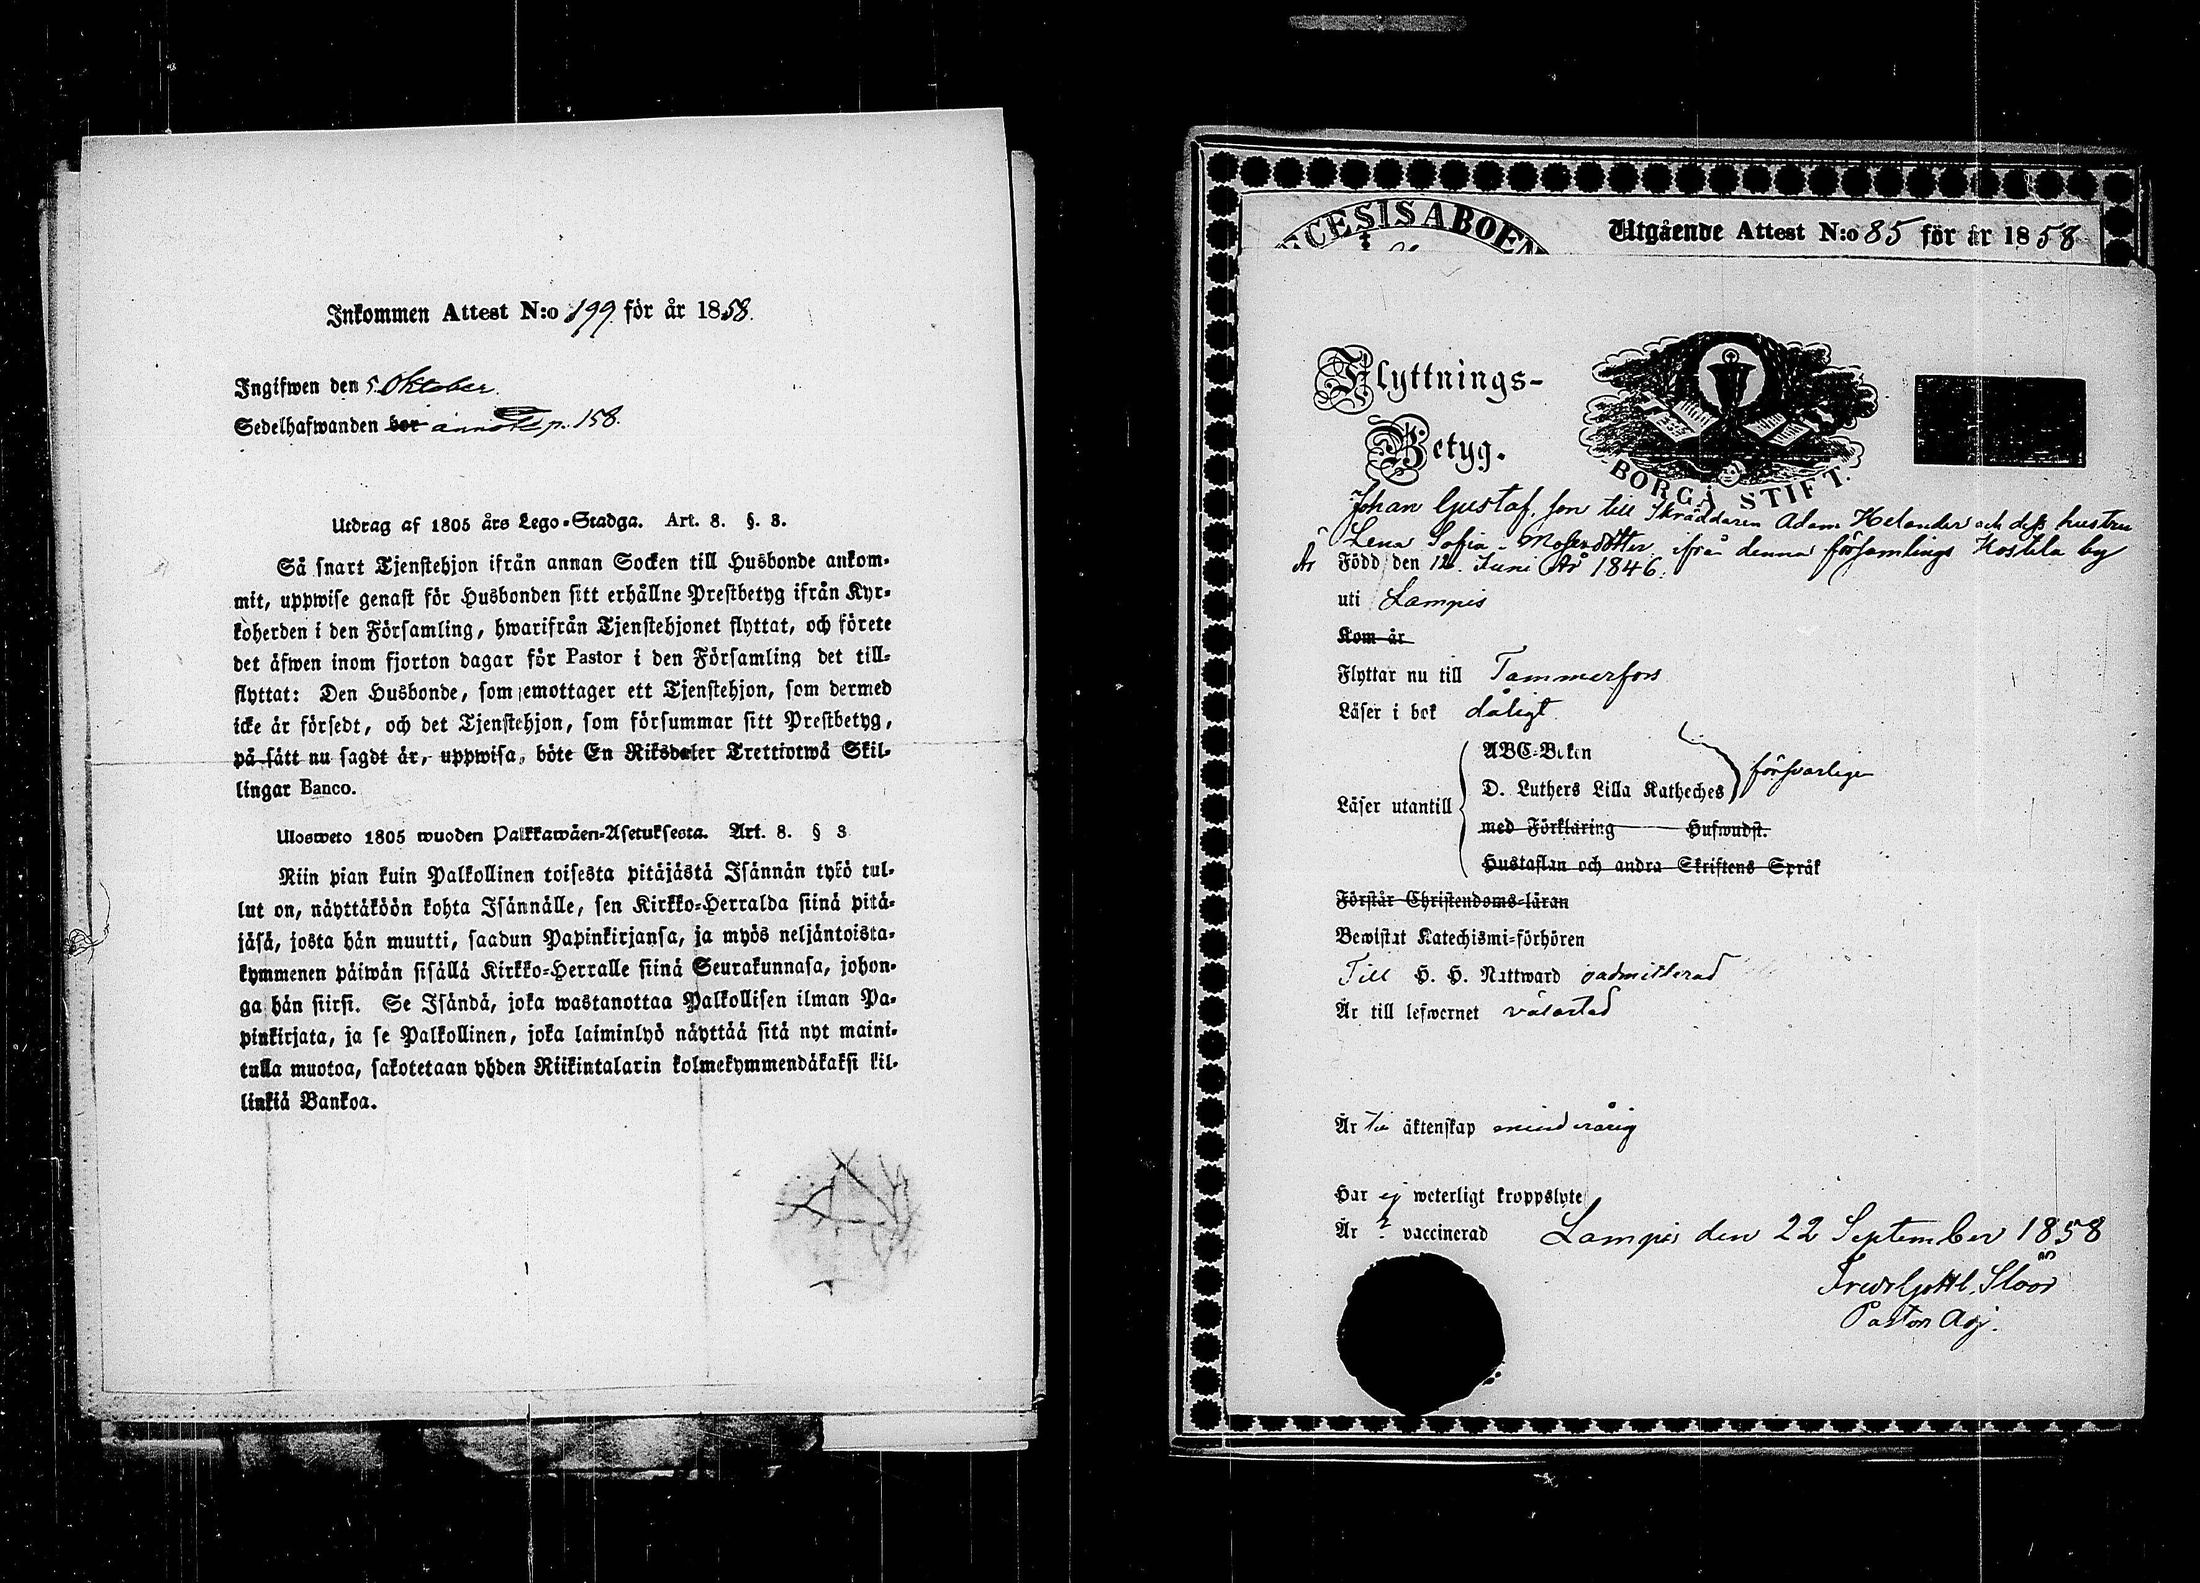 Inkommen Attest N:o 199 för år 1858.
Ingifwen den 5 Oktober.
Sedelhafwanden bor p. 158.
Utdrag af 1805 års Lego-Stadga. Art. 8. §. 3.
Så snart Tjenstehjon ifrån annan Socken till Husbonde ankom-
mit, uppwise genast för Husbonden sitt erhållne Prestbetyg ifrån Kyr-
koherden i den Församling, hwarifrån Tjenstehjonet flyttat, och förete
det äfwen inom fjorton dagar för Pastor i den Församling det till-
flyttat: Den Husbonde, som emottager ett Tjenstehjon, som dermed
icke är försedt, och det Tjenstehjon, som försummar sitt Prestbetyg,
på sätt nu sagdt är, uppwisa, böte En Riksdaler Trettiotwå Skil-
lingar Banco.
Ulosweto 1805 wuoden Palkkawäen-Asetuksesta. Art. 8. § 3
Niin pian kuin Palkollinen toisesta pitäjästä Isännän tykö tul-
lut on, näyttäköön kohta Isännälle, sen Kirkko-Herralda siinä pitä-
jäsä, josta hän muutti, saadun Papinkirjansa, ja myös neljäntoista-
kymmenen päiwän sisällä Kirkko-Herralle siinä Seurakunnasa, johon-
ga hän siirsi. Se Isändä, joka wastanottaa Palkollisen ilman Pa-
pinkirjata, ja se Palkollinen, joka laiminlyö näyttää sitä nyt maini-
tulla muotoa, sakotetaan yhden Riikintalarin kolmekymmendäkaksi kil-
linkiä Bankoa.
ECESIS ABOEN
Utgående Attest N:o 85 för år 1858
Flyttnings-
Betyg.
BORGÅ STIFT.
Johan Gustaf, son till Skräddaren Adam Helander och dess hustru
Lena Sofia Mosesdotter ifrån denna församlings Kostila by
Är Född den 12 Juni År 1846.
uti Lampis
Kom år
Flyttar nu till Tammerfors
Läser i bok dåligt
Läser utantill
ABC-Boken
D. Luthers Lilla Katheches
försvarligen
med Förklaring Hufwudst.
Hustaflan och andra Skriftens Språk
Förstår Christendoms-läran
Bewistat Katechismi-förhören
Till H. H. Nattward oadmitterad
Är till lefwernet välartad
Är till äktenskap minderårig
Har ej weterligt kroppslyte
Är vaccinerad
Lampis den 22 September 1858
Fredr Gottl. Sloor
Pastor Adj.